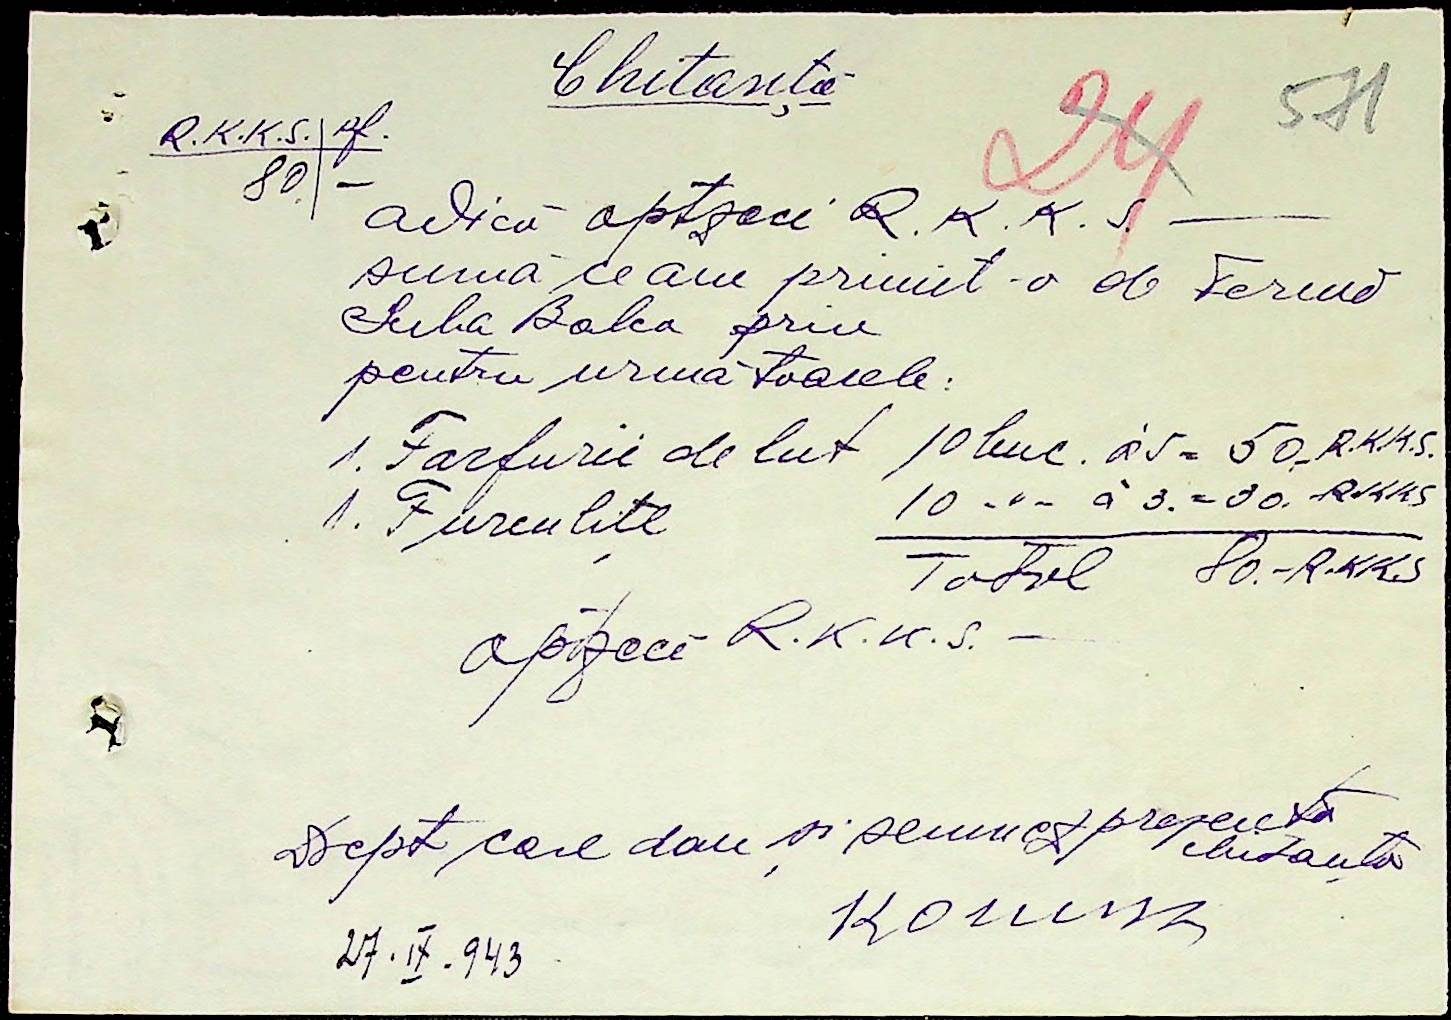 Chitanță
24
571
R.K.K.S. | pf.
80. | —
adică optzeci R.K.K.S. —
suma ce am primit-o de Ferma
Balca prin
pentru următoarele:
1. Farfurii de lut 10 buc. à 5 = 50.- R.K.K.S.
1. Furculițe 10 -"- à 3. = 30. - R.KKS
Total 80.- R.KKS
optzeci R.K.K.S. —
Drept care dau și semnez prezenta
chitanța
27.IX.943